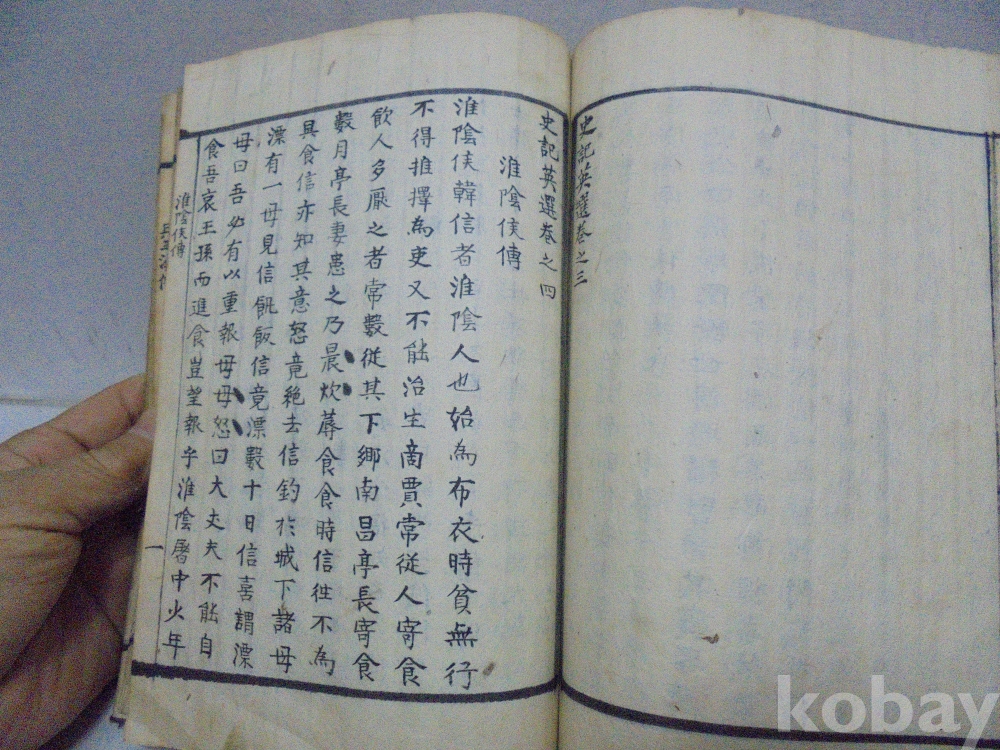 史記英選卷之三
史記英選卷之四
淮陰侯傳
淮陰侯韓信者淮陰人也始為布衣時貧無行
不得推擇為吏又不能治生商賈常從人寄食
飲人多厭之者常數從其下鄉南昌亭長寄食
數月亭長妻患之乃晨炊蓐食食時信往不為
具食信亦知其意怒竟絶去信釣於城下諸母
漂有一母見信飢飯信竟漂數十日信喜謂漂
母曰吾必有以重報母母怒曰大丈夫不能自
食吾哀王孫而進食豈望報乎淮陰屠中少年
淮陰侯傳
一
kobay